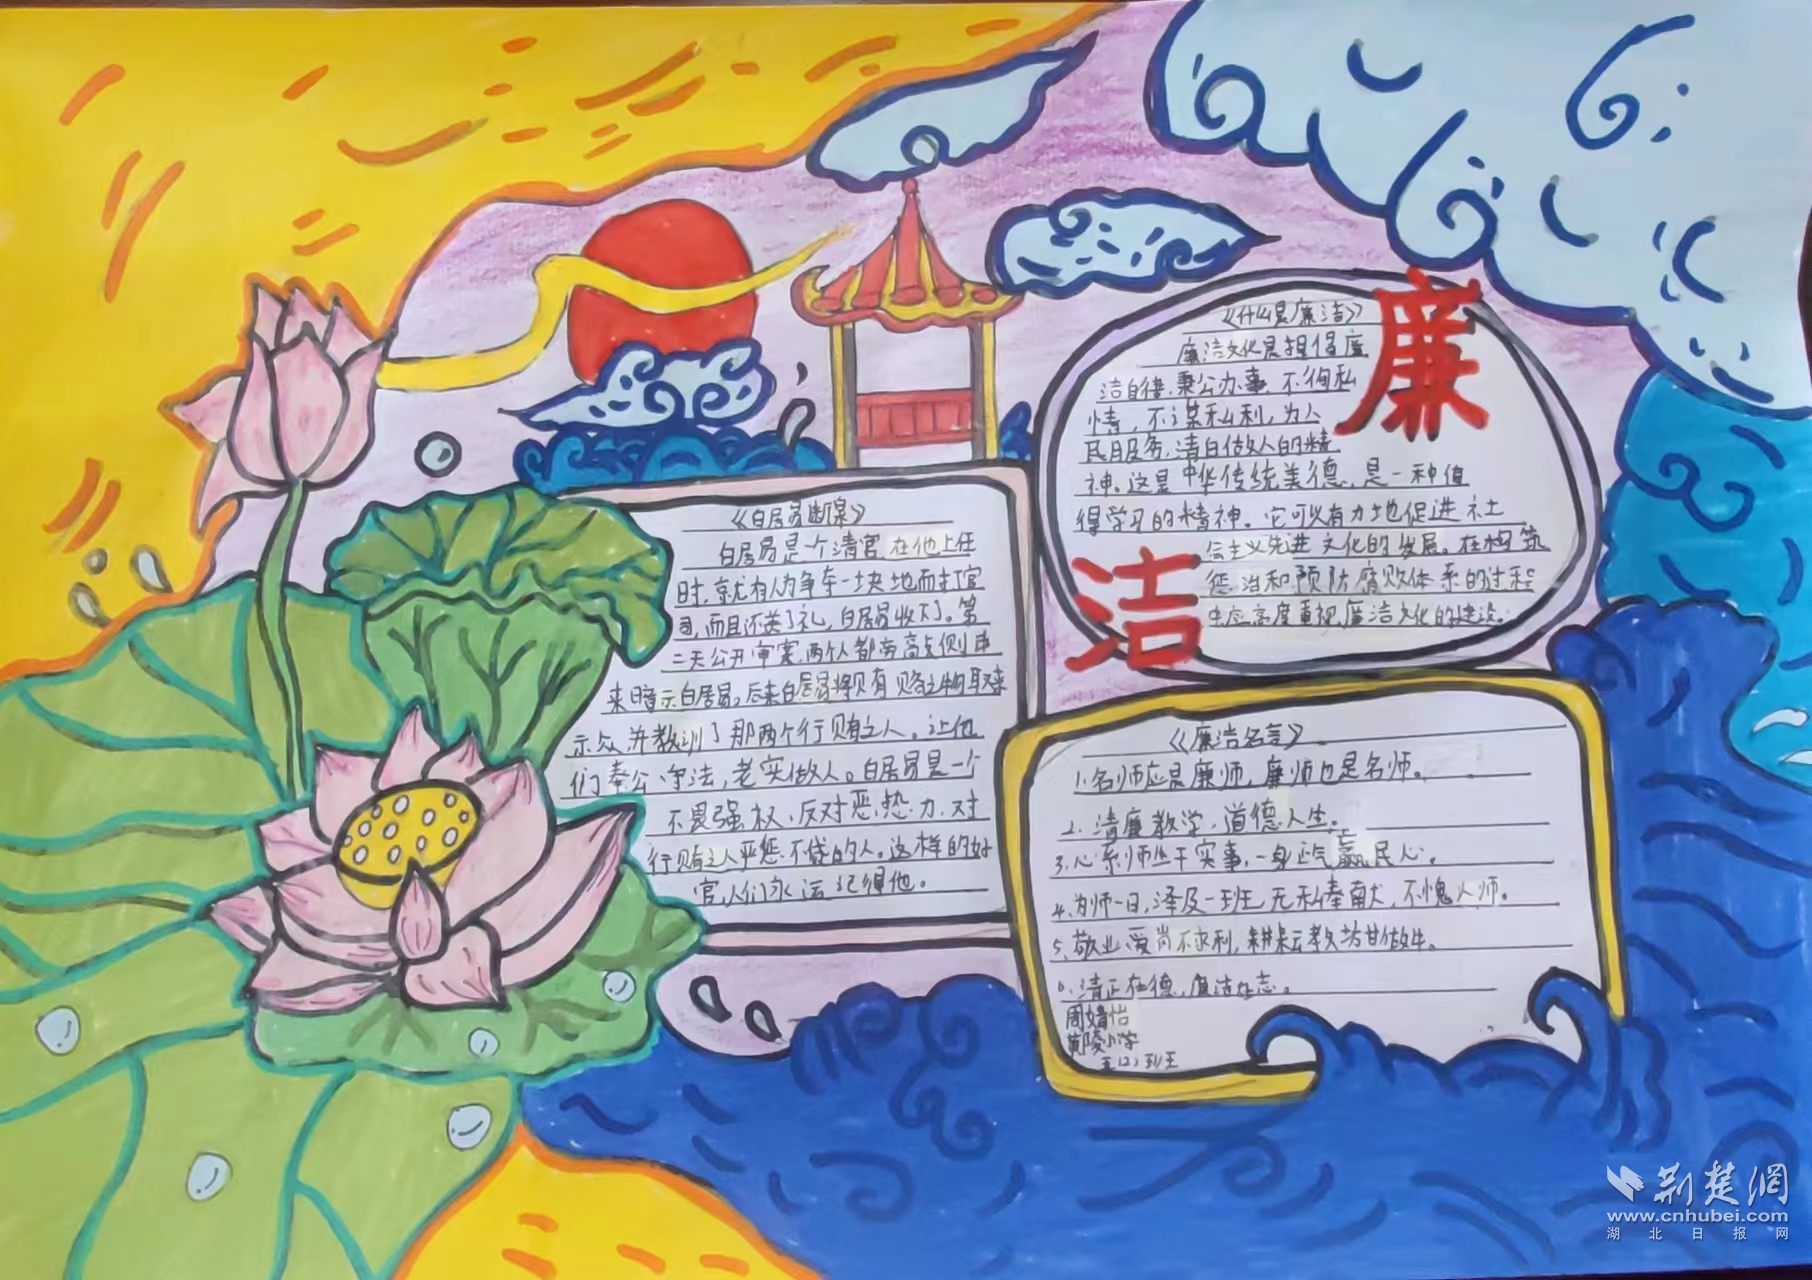 《白居易断案》
白居易是一个清官,在他上任
时,就有人为争夺一块地而打官
司,而且还送了礼,白居易收下了。第
二天公开审案,两个人都带高点侧耳
来暗示白居易,后来白居易将贝有贝各之物取来
示众并教训了那两个行贝有之人。让他
们奉公守法,老实做人。白居易是一个
不畏强权、反对恶热力、对
行贝有之人严惩不贷的人。这样的好
官,人们永远记得他。
《什么是廉洁》
廉洁文化是提倡廉
洁自律,秉公办事,不徇私
情,不谋私利,为人
民服务,清白做人的精
神。这是中华传统美德,是一种值
得学习的精神。它可以有力地促进社
会主义先进文化的发展。在构筑
惩治和预防腐败体系的过程
中应高度重视廉洁文化的建设。
廉
洁
《廉洁名言》
1.名师应是廉师,廉师也是名师。
2.清廉教学,道德人生。
3.心系师生干实事,一身正气赢民心。
4.为师一日,泽及一班,无私奉献,不愧人师。
5.敬业爱岗不求利,耕耘教坛甘做牛。
6.清正在德,廉洁在志。
周婧怡
黄陵小学
五(2)班
荆楚网
www.cnhubei.com
湖北日报网